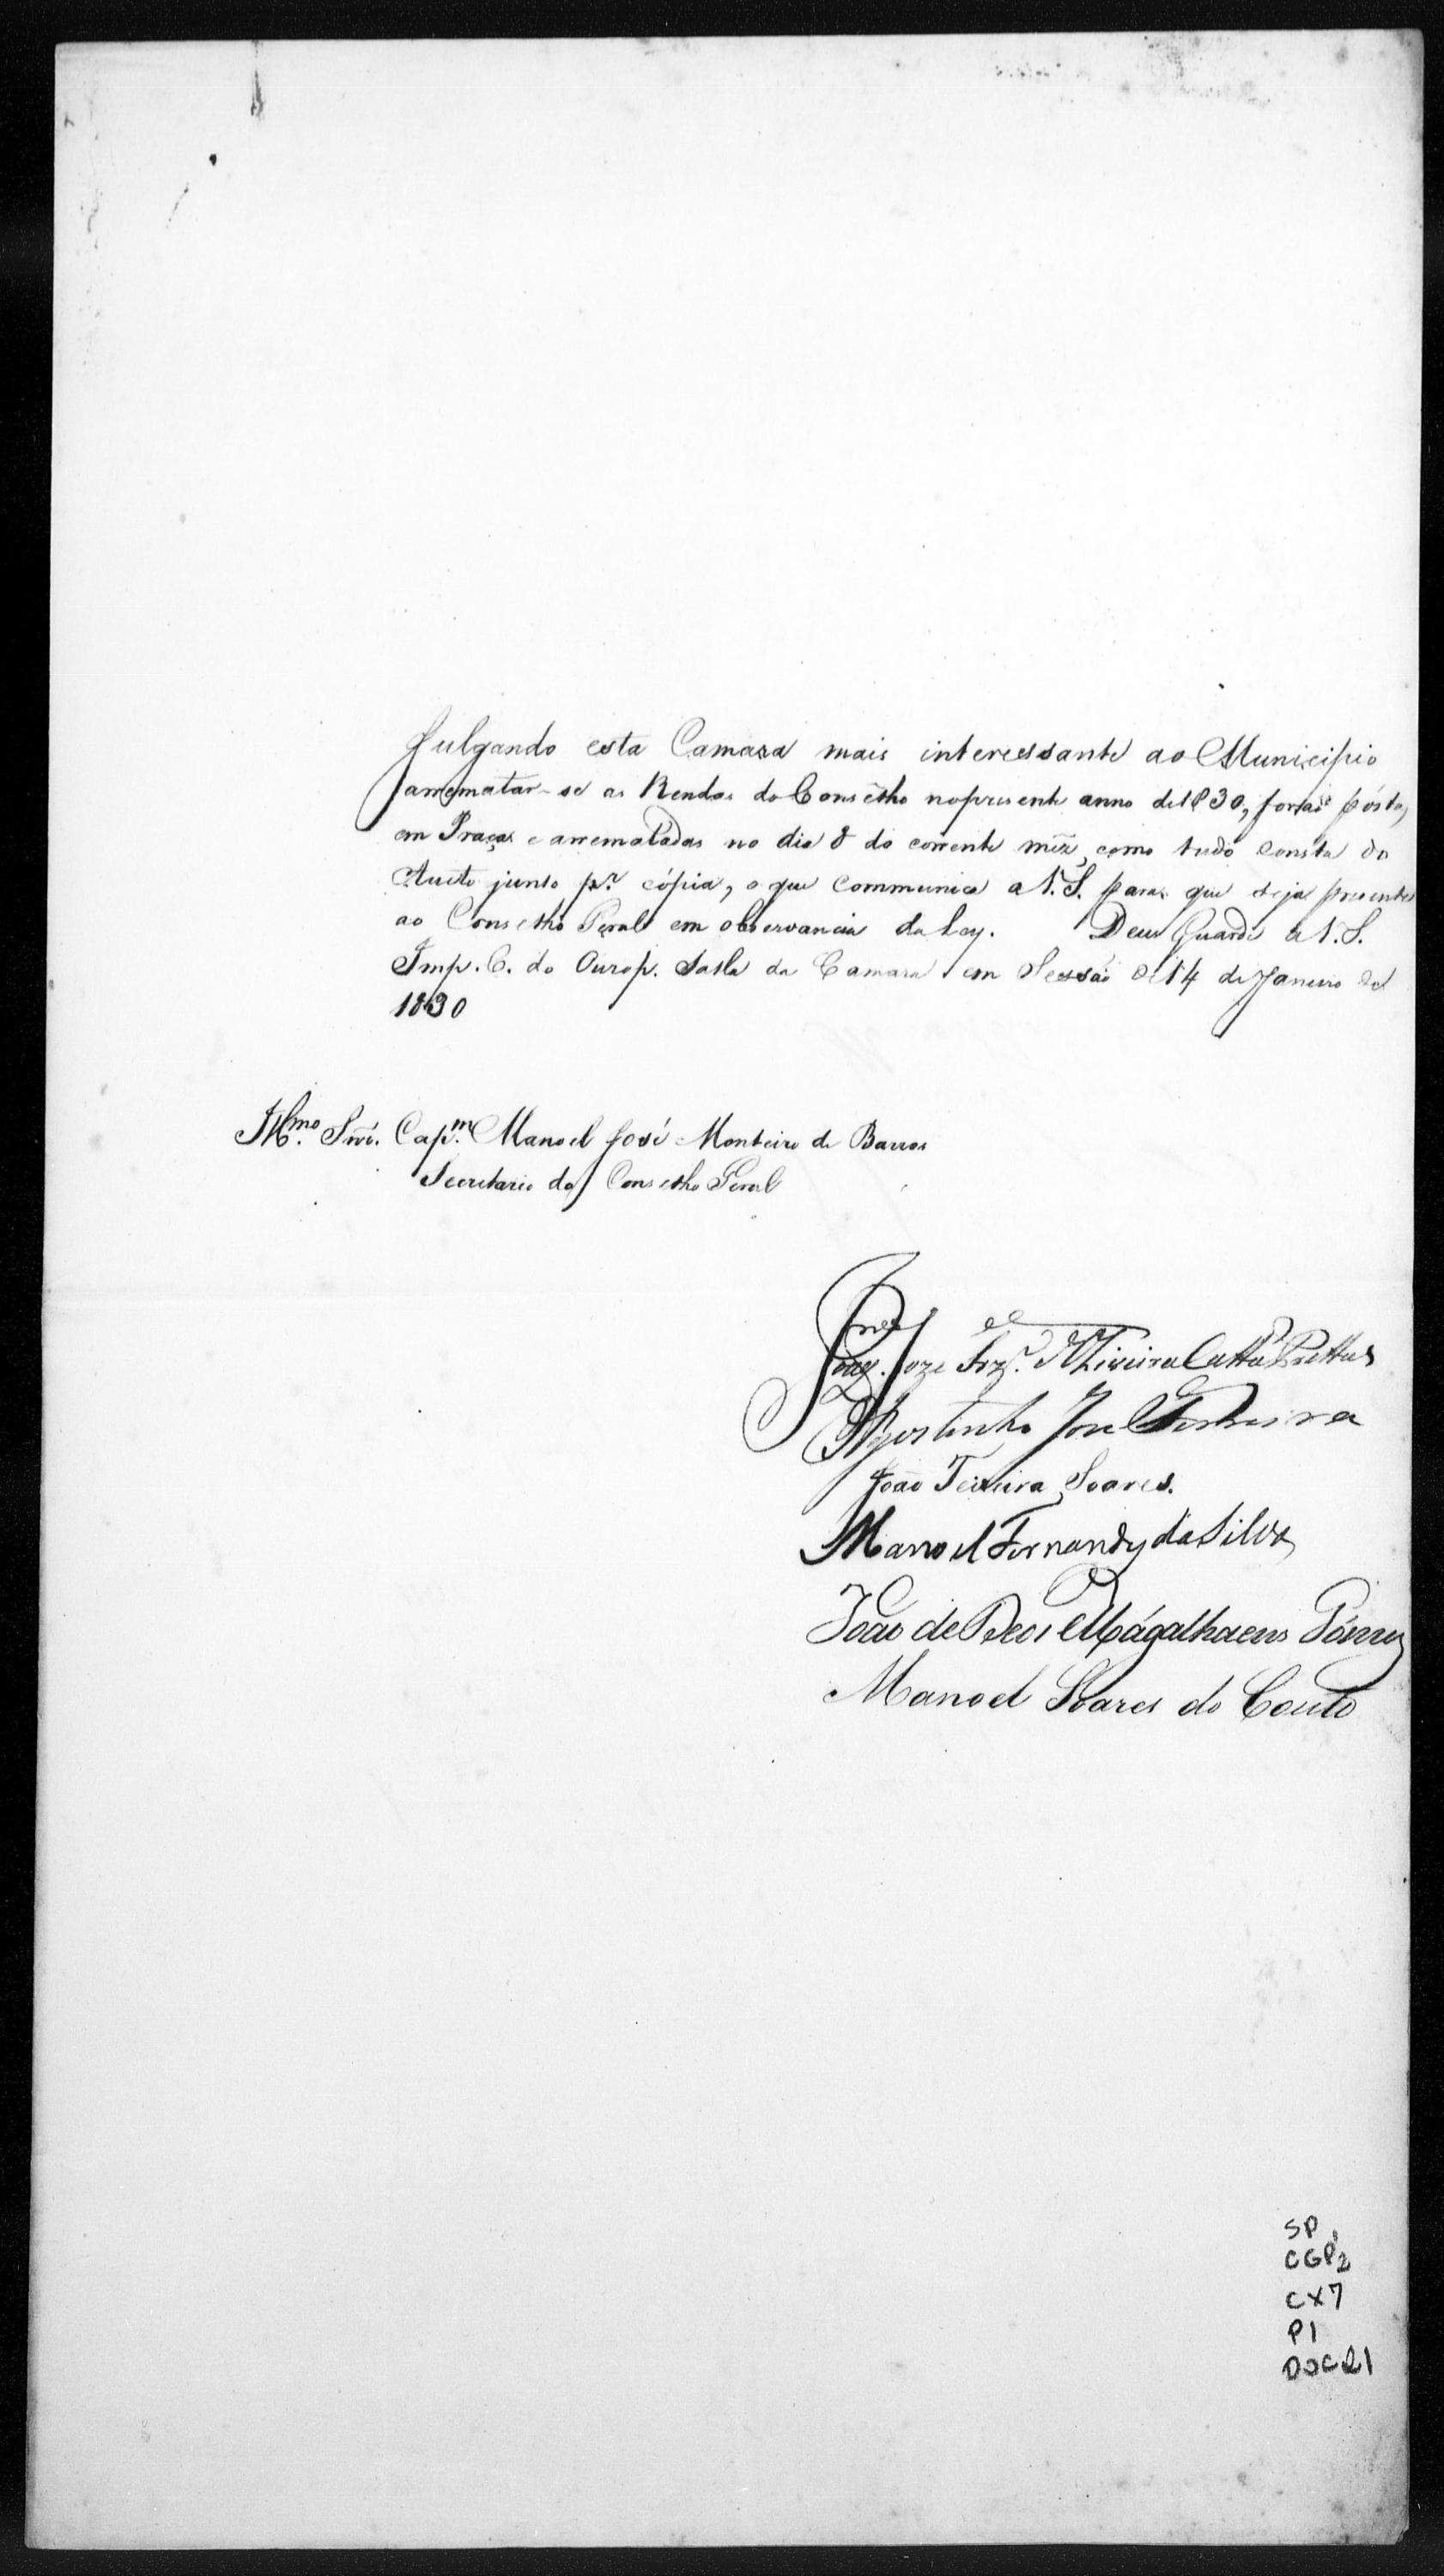 Julgando esta Camara mais interessante ao Municipio
arrematar-se as Rendas do Consêlho no presente anno de 1830, forão póstas
em Praça e arrematadas no dia 8 do corrente mêz, como tudo consta do
Aucto junto pr. cópia, o que communica a V.S. para que seja presente
ao Conselho Geral em observancia da Ley. Deus Guarde a V.S.
Imp. C. do Ourop. Salla da Camara em Sessão de 14 de Janeiro de
1830
Illmo. Snr. Capm. Manoel José Monteiro de Barros
Secretario do Conselho Geral
Joaq. Joze Frz. de Oliveira Catta Prettas
Agostinho José Ferreira
João Teixeira Soares.
Manoel Fernandes da Silva
João de Deos Mágalhaens Gómes
Manoel Soares do Couto
SP
CGP2
CX7
P1
DOC21